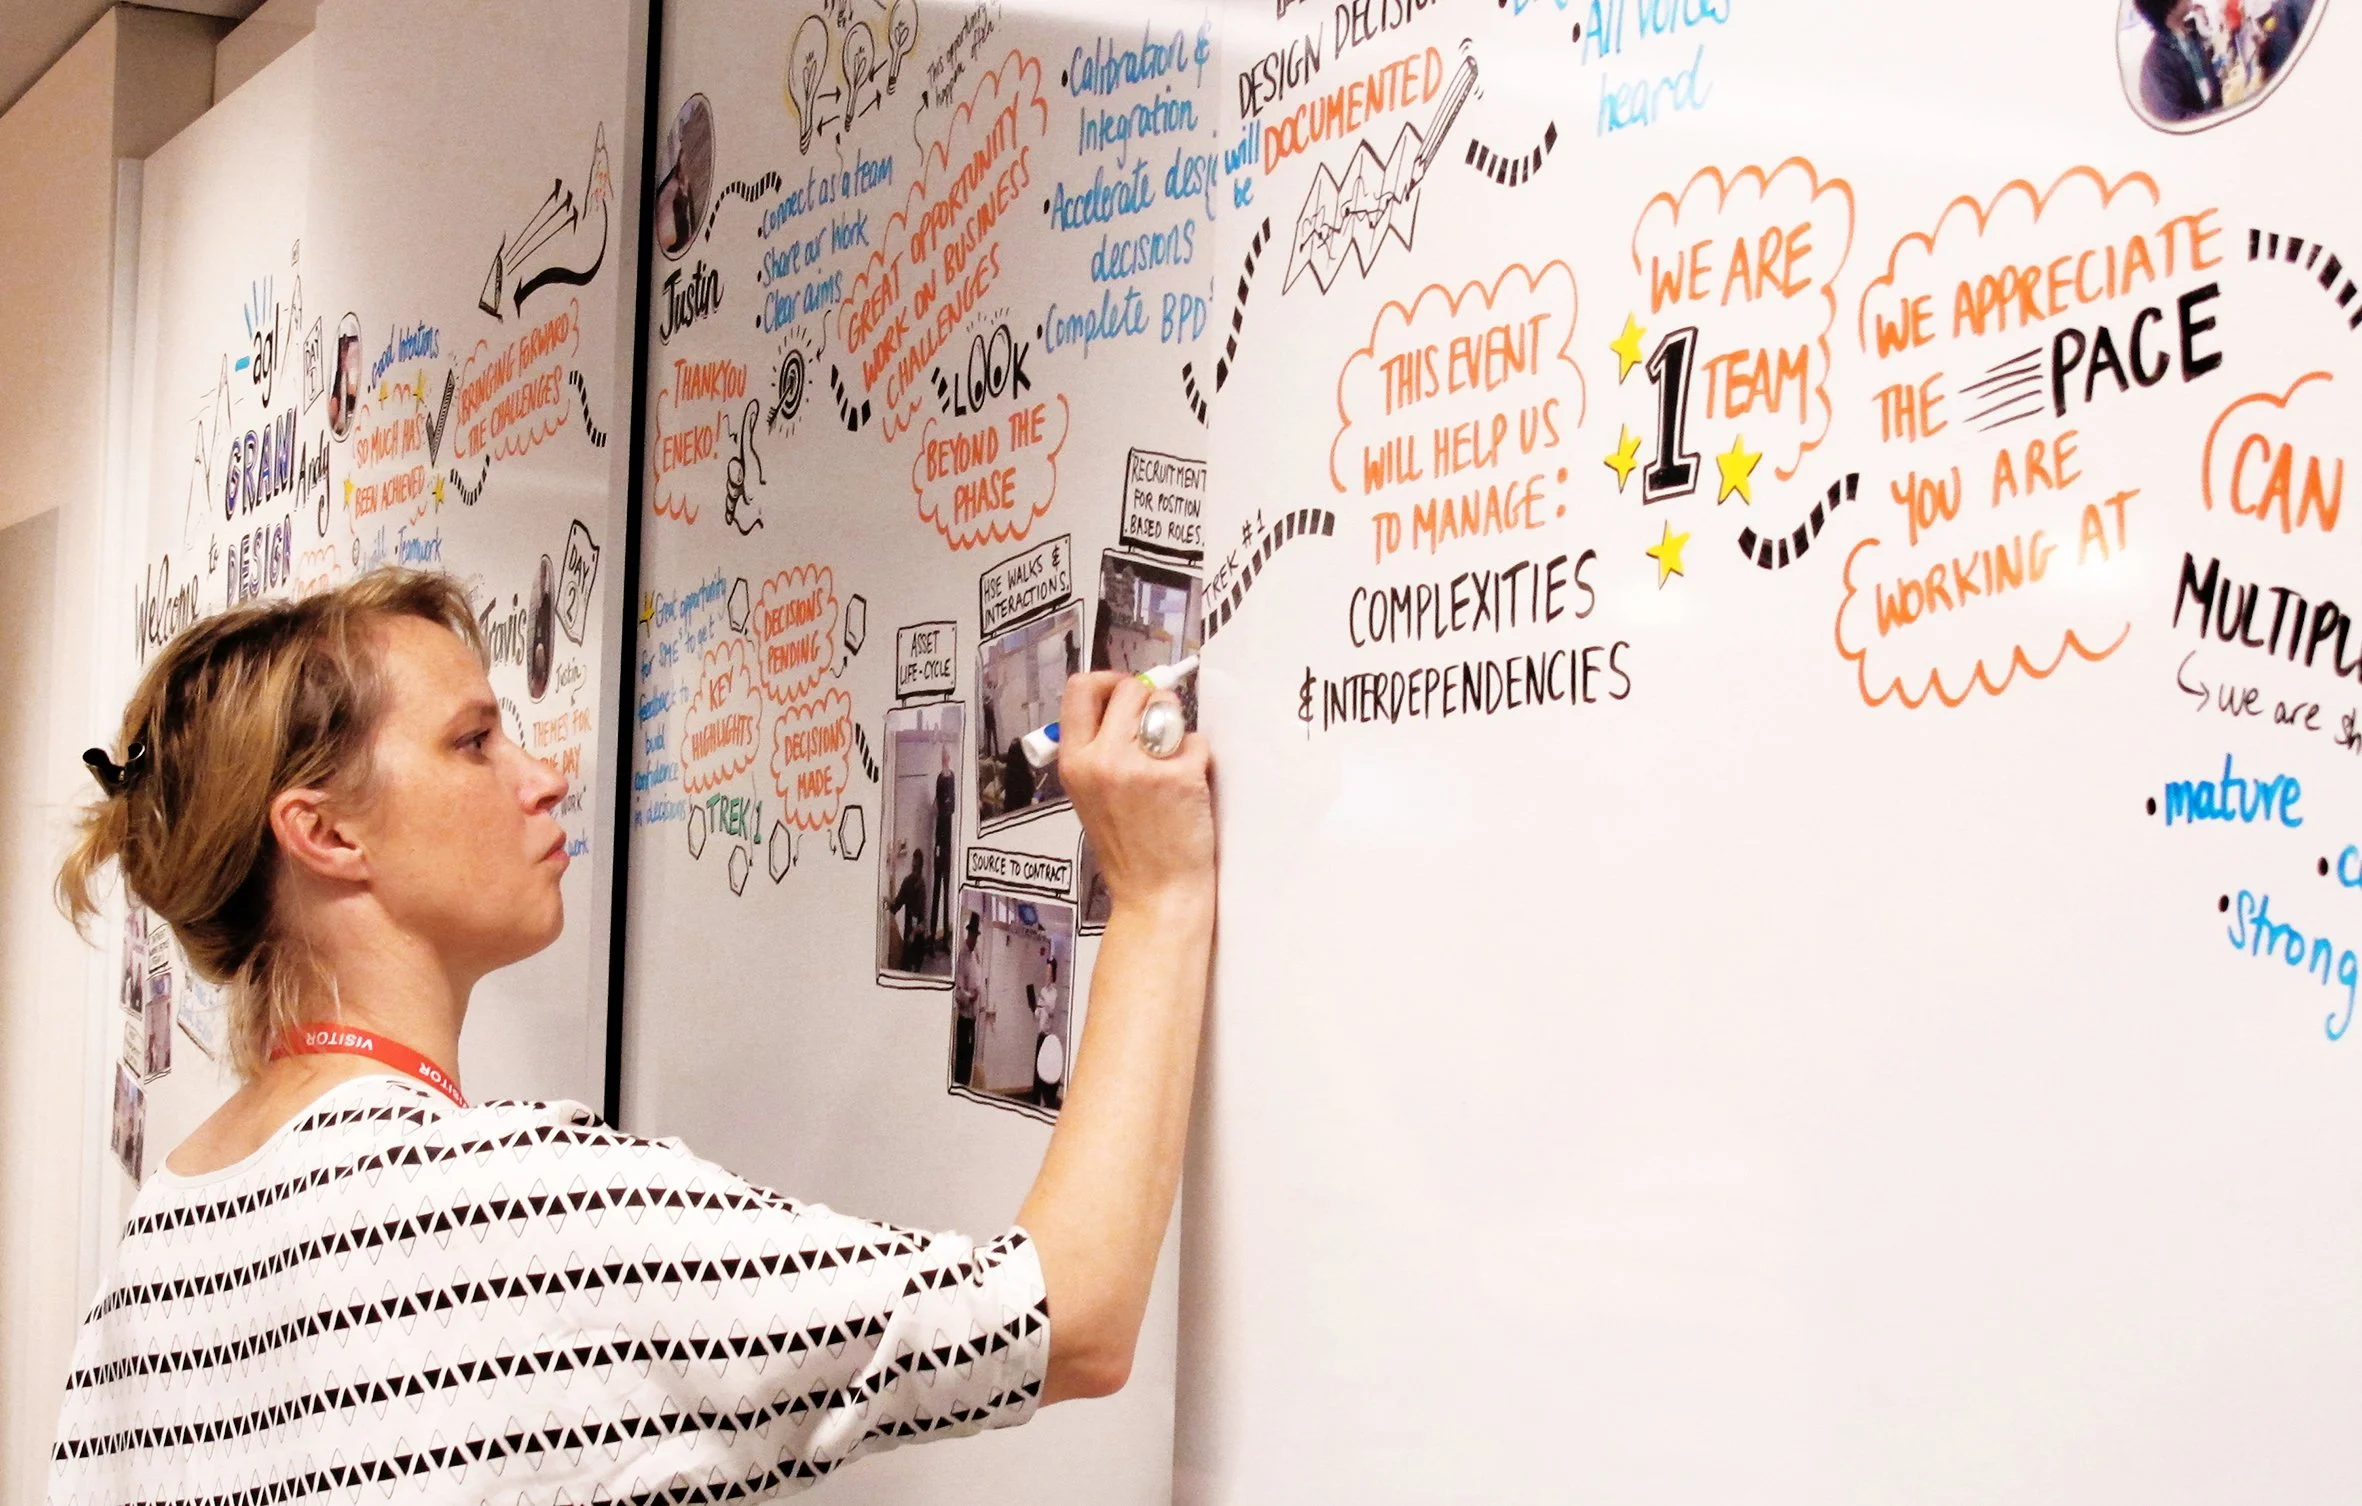 agl
DAY
1
Welcome
to
GRAND
DESIGN
Andy
Good Intentions
SO MUCH HAS
BEEN ACHIEVED
BRINGING FORWARD
THE CHALLENGES
Teamwork
Travis
DAY
2
Justin
THEMES FOR
DAY
WORK"
work
Justin
• Connect as a team
• Share our Work
• Clear aims
THANKYOU
ENEKO!
This opportunity
GREAT OPPORTUNITY
WORK ON BUSINESS
CHALLENGES
LOOK
BEYOND THE
PHASE
• Calibration &
Integration
• Accelerate
decisions
• Complete BPD's
Great opportunity
for SME's to get
feedback to
build
confidence
in decisions
KEY
HIGHLIGHTS
DECISIONS
PENDING
DECISIONS
MADE
TREK 1
ASSET
LIFE-CYCLE
HSE WALKS &
INTERACTIONS.
RECRUITMENT
FOR POSITION
BASED ROLES.
SOURCE TO CONTRACT
DESIGN
will
be
DOCUMENTED
• All voices
heard
TREK #1
THIS EVENT
WILL HELP US
TO MANAGE:
COMPLEXITIES
& INTERDEPENDENCIES
WE ARE
1 TEAM
WE APPRECIATE
THE PACE
YOU ARE
WORKING AT
CAN
we are
• mature
• Strong
VISITOR
VISITOR